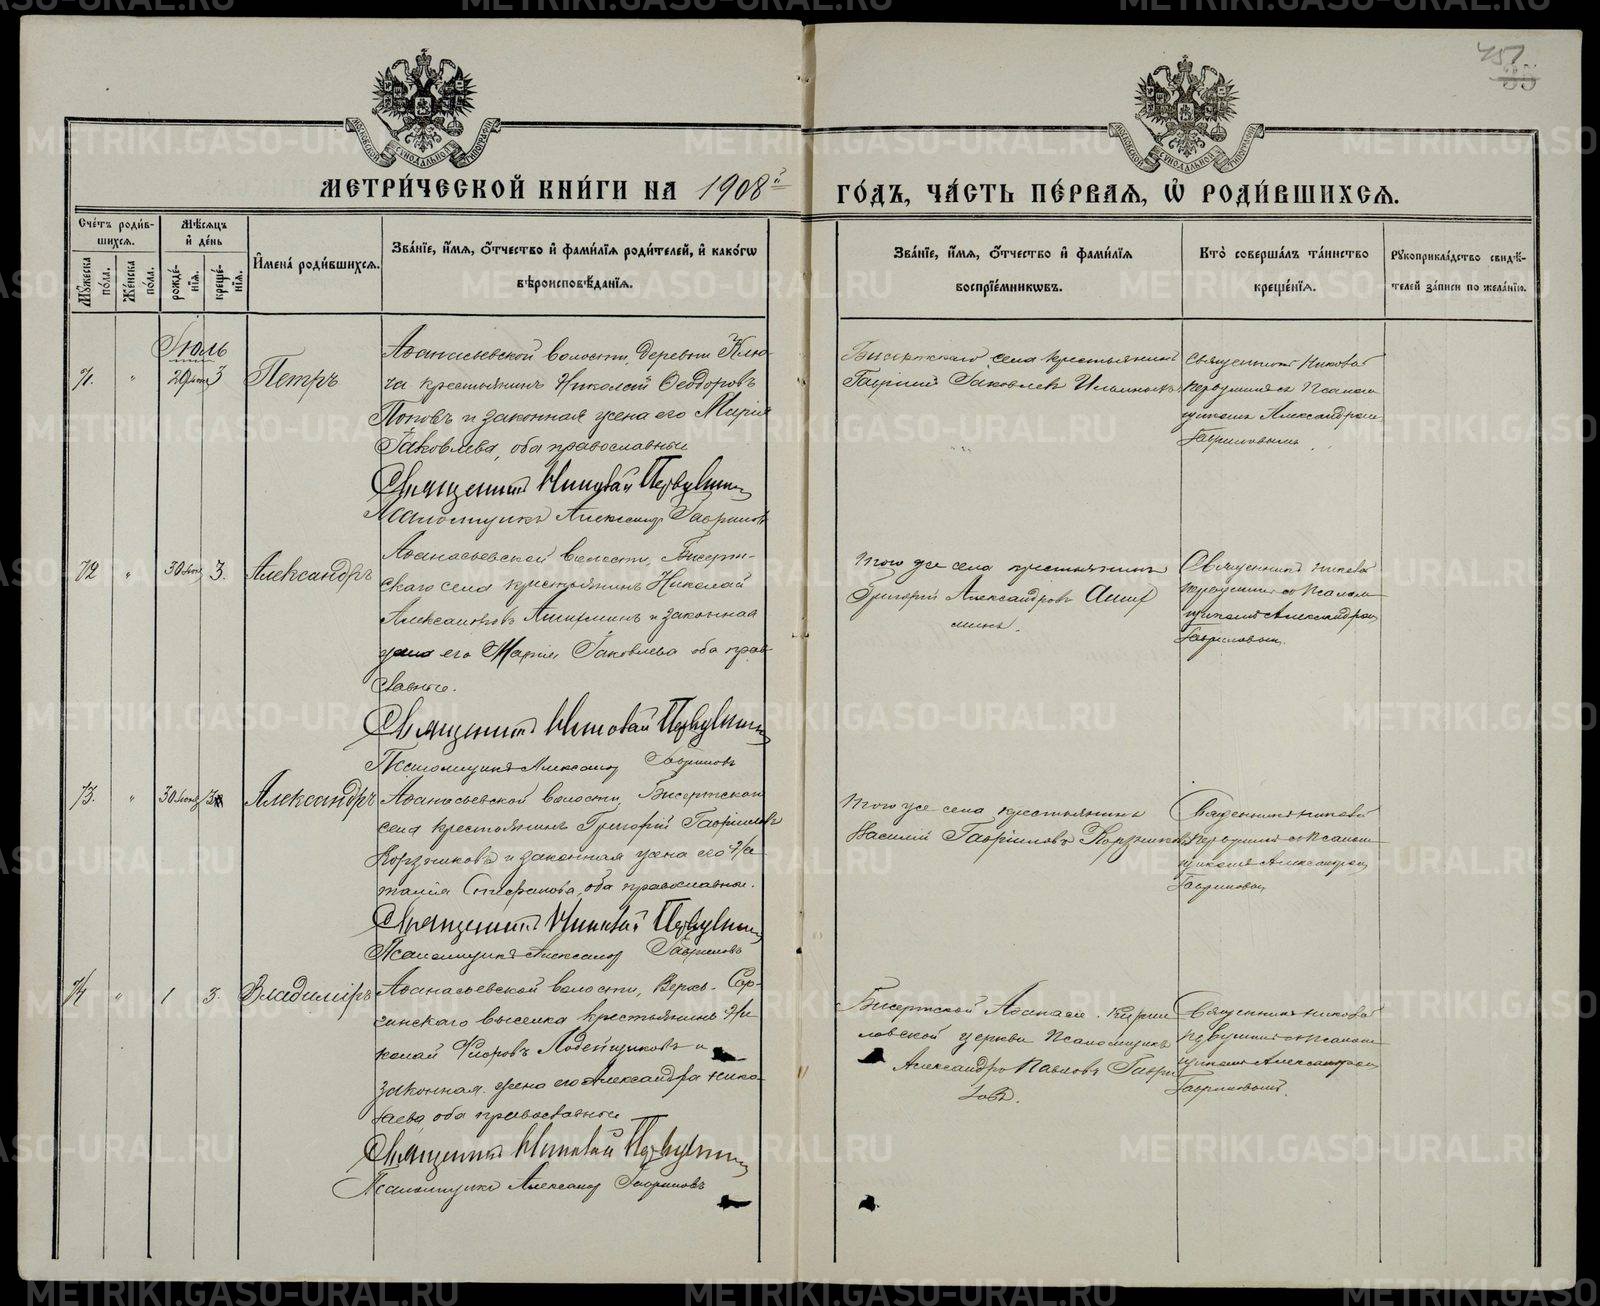 451
МОСКОВСКОЙ СѴНОДАЛЬНОЙ ТИПОГРАФІИ
МОСКОВСКОЙ СѴНОДАЛЬНОЙ ТИПОГРАФІИ
МЕТРИ́ЧЕСКОЙ КНИ́ГИ НА 1908й
ГО́ДЪ, ЧА́СТЬ ПЕ́РВАЯ, Ѡ РОДИ́ВШИХСЯ.
Сче́тъ роди́в-
шихся.
Му́жеска по́ла.
Же́нска по́ла.
Мѣ́сяцъ
и҆ де́нь
рожде́-
нія.
креще́-
нія.
И҆мена̀ роди́вшихся.
Зва́ніе, и҆́мя, ѻ҆́тчество и҆ фами́лія роди́телей, и҆ како́гѡ
вѣроисповѣ́данія.
Зва́ніе, и҆́мя, ѻ҆́тчество и҆ фами́лія
воспріе́мникѡвъ.
Кто̀ соверша́лъ та́инство
креще́нія.
Рꙋкоприкла́дство свидѣ́-
телей за́писи по жела́нію.
Іюль
71. " 29 Іюня 3 Петръ
Аѳанасьевской волости, деревни Клю-
ча крестьянинъ Николай Ѳеодоровъ
Поповъ и законная жена его Марія
Іаковлева, оба православные
Священникъ Николай Первушинъ
Псаломщикъ Александр Гавриловъ
Бисертскаго села крестьянинъ
Гавріилъ Іаковлев
Священникъ Николай
Первушинъ с Псалом
щикомъ Александромъ
Гавриловымъ.
72 " 30 Іюня 3. Александръ
Аѳанасьевской волости, Бисерт-
скаго села крестьянинъ Николай
Александровъ и законная
жена его Марія Іаковлева оба право-
славные.
Священникъ Николай Первушинъ
Псаломщикъ Александр Гавриловъ
того же села крестьянинъ
Григорій Александровъ
Священникъ Николай
Первушинъ со Псалом
щикомъ Александромъ
Гавриловым.
73. " 30 Іюня 3 Александръ
Аѳанасьевской волости, Бисертскаго
села крестьянинъ Григорій Гавріиловъ
Корзниковъ и законная жена его На-
талія Стефанова, оба православные.
Священникъ Николай Первушинъ
Псаломщикъ Александр Гавриловъ
того же села крестьянинъ
Василій Гавріиловъ Корзниковъ
Священникъ Николай
Первушинъ со Псалом
щикомъ Александром
Гавриловым
74 " 1 3. Владиміръ
Аѳанасьевской волости, Верхъ-Сар-
гинскаго выселка крестьянинъ Ни
колай Флоровъ Лодейщиковъ и
законная жена его Александра Нико-
лаева, оба православные
Священникъ Николай Первушинъ
Псаломщикъ Александр Гавриловъ
Бисертской Аѳанасіе-Кирил
ловской церкви Псаломщикъ
Александръ Павловъ Гаври
ловъ.
Священникъ Николай
Первушинъ со Псалом
щикомъ Александром
Гавриловымъ.
METRIKI.GASO-URAL.RU